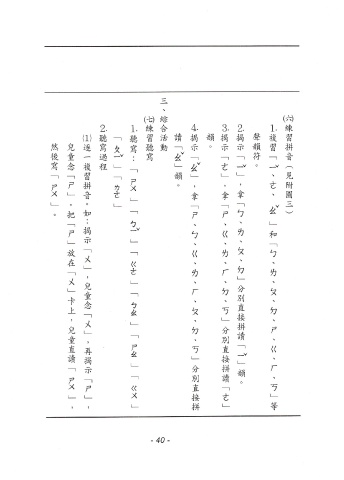 ㈥練習拼音(見附圖三)
1.複習「ㄧˇ、ㄜ、ㄠˇ」和「ㄅ、ㄉ、ㄆ、ㄌ、ㄕ、ㄍ、ㄏ、ㄎ」等
聲韻符。
2.揭示「ㄧˇ」，拿「ㄅ、ㄉ、ㄆ、ㄌ」分別直接拼讀「ㄧˇ」韻。
3.揭示「ㄜ」，拿「ㄕ、ㄍ、ㄉ、ㄏ、ㄌ、ㄎ」分別直接拼讀「ㄜ」
韻。
4.揭示「ㄠˇ」，拿「ㄕ、ㄅ、ㄍ、ㄉ、ㄏ、ㄆ、ㄌ、ㄎ」分別直接拼
讀「ㄠˇ」韻。
三、綜合活動
㈦練習聽寫
1.聽寫：「ㄕㄨ」「ㄅㄧˇ」「ㄍㄜ」「ㄅㄠ」「ㄕㄠ」「ㄍㄨ」
「ㄆㄧˇ」「ㄉㄜ」
2.聽寫過程
⑴逐一複習拼音。如：揭示「ㄨ」，兒童念「ㄨ」，再揭示「ㄕ」，
兒童念「ㄕ」，把「ㄕ」放在「ㄨ」卡上，兒童直讀「ㄕㄨ」，
然後寫「ㄕㄨ」。
- 40 -